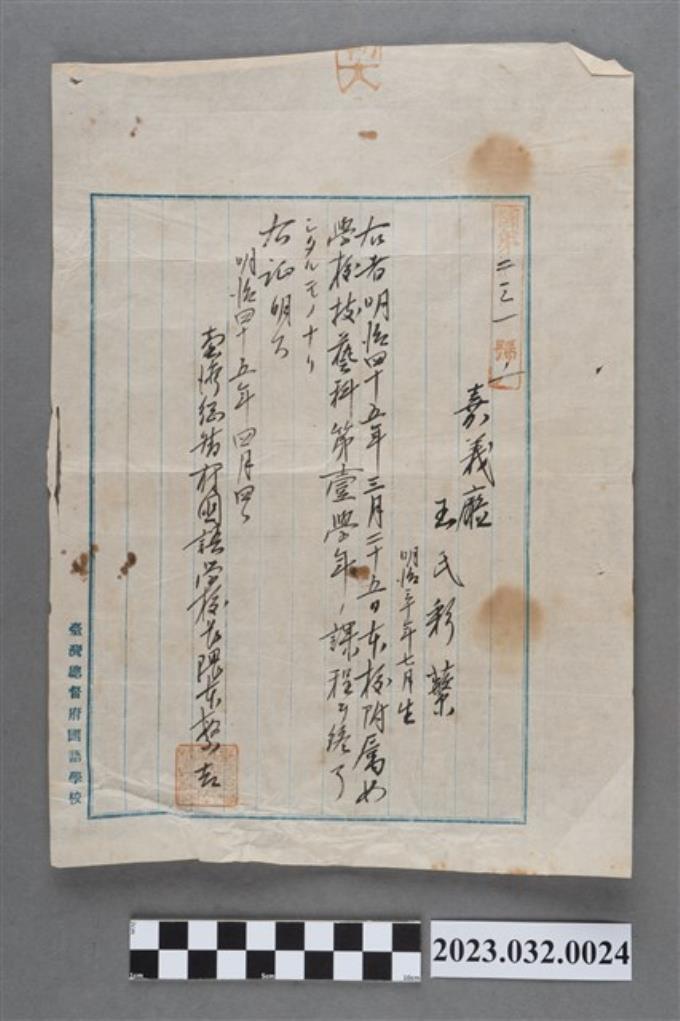 第二三一號
嘉義廳
王氏彩蘩
明治三十年七月生
右者明治四十五年三月二十五日本校附屬女
學校技藝科第壹學年ノ課程ヲ終了
シタルモノナリ
右証明ス
明治四十五年四月四日
臺灣總督府國語學校長隈本繁吉
臺灣總督府國語學校
2023.032.0024
1cm
5cm
10cm